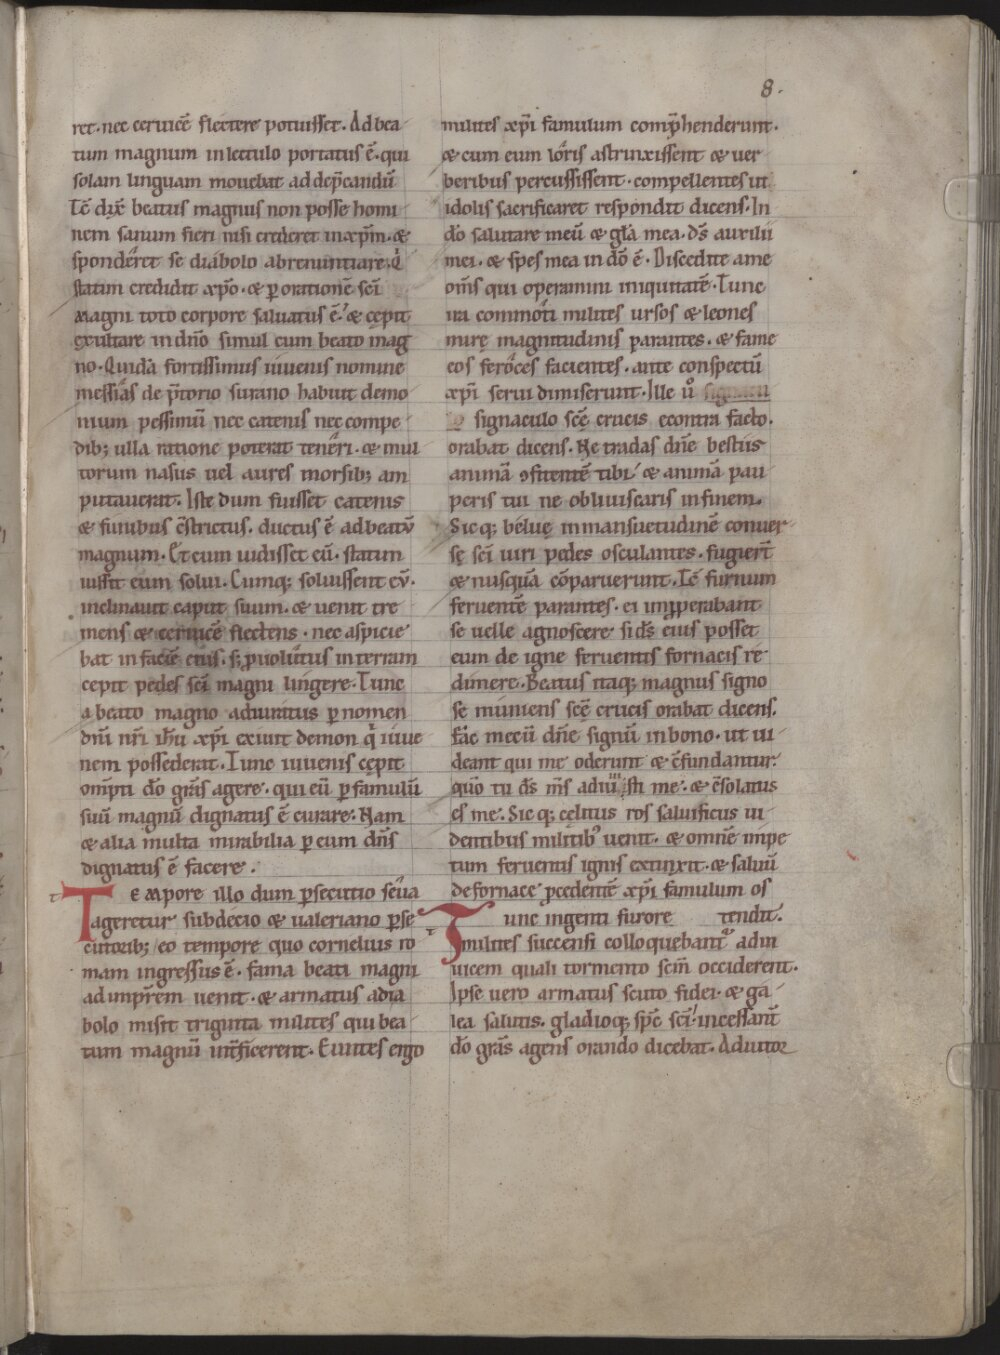 8.
ret. nec ceruicē flectere potuisset. Ad bea
tum magnum in lectulo portatus ē. qui
solam linguam mouebat ad dep̄candū
Tc̄ dix̄ beatus magnus non posse homi
nem sanum fieri nisi crederet in xp̄m. &
sponderet se diabolo abrenuntiare. Q̇
statim credidit xp̄o. & ꝑ orationē sc̄i
magni toto corpore saluatus ē. & cępit
exultare in dn̄o simul cum beato mag
no. Quidā fortissimus iuuenis nomine
messias de p̄torio surano habuit demo
nium pessimū nec catenis nec compe
dib; ulla ratione poterat teneri. & mul
torum nasus uel aures morsib; am
putauerat. Iste dum fuisset catenis
& funibus c̄strictus. ductus ē ad beatū
magnum. Et cum uidisset eū. statim
iussit eum solui. Cumq; soluissent eū.
inclinauit caput suum. & uenit tre
mens & ceruicē flectens. nec aspicie
bat in faciē eius. s; ꝓuolutus in terram
cepit pedes sc̄i magni lingere. Tunc
a beato magno adiuratus ꝑ nomen
dn̄i nr̄i ih̄u xp̄i exiuit demon q̇ iuue
nem possederat. Tunc iuuenis cępit
om̄pti dō grās agere. qui eū ꝑ famulū
suū magnū dignatus ē curare. Nam
& alia multa mirabilia ꝑ eum dn̄s
dignatus ē facere.
t Tempore illo dum ꝑsecutio sęua
ageretur sub decio & ualeriano ꝑse
cutorib; eo tempore quo cornelius ro
mam ingressus ē. fama beati magni
ad imp̄rem uenit. & armatus a dia
bolo misit triginta milites qui bea
tum magnū int̄ficerent. Euntes ergo
milites xp̄i famulum comp̄henderunt.
& cum eum loris astrinxissent & uer
beribus percussissent. compellentes ut
idolis sacrificaret respondit dicens. In
dō salutare meū & glā mea. ds̄ auxilii
mei. & spes mea in dō ē. Discedite a me
om̄s qui operamini iniquitatē. Tunc
ira commoti milites ursos & leones
mirę magnitudinis parantes. & fame
eos feroces facientes. ante conspectū
xp̄i serui dimiserunt. Ille ū
signaculo scē crucis econtra facto.
orabat dicens. Ne tradas dn̄e bestiis
animā ꝯfitentē tibi. & animā pau
peris tui ne obliuiscaris in finem.
Sicq; beluę in mansuetudinē conuer
sę sc̄i uiri pedes osculantes. fugiert̄
& nusquā cōparuerunt. Tc̄ furnum
feruentē parantes. ei inꝓperabant
se uelle agnoscere si ds̄ eius posset
eum de igne feruentis fornacis re
dimere. Beatus itaq; magnus signo
se muniens scē crucis orabat dicens.
Fac mecū dn̄e signū in bono. ut ui
deant qui me oderunt & c̄fundantur.
qūo tu ds̄ ms̄ adiuuisti me. & c̄solatus
es me. Sicq; cęlitus ros saluificus ui
dentibus militibꝰ uenit. & omnē impe
tum feruentis ignis extinxit. & saluū
de fornace ꝓcedentē xp̄i famulum os
t Tunc ingenti furore tendit.
milites succensi colloquebant̄ ad in
uicem quali tormento scm̄ occiderent.
Ipse uero armatus scuto fidei. & ga
lea salutis. gladioq; spc̄ sc̄i. incessant̄
dō grās agens orando dicebat. Adiutor